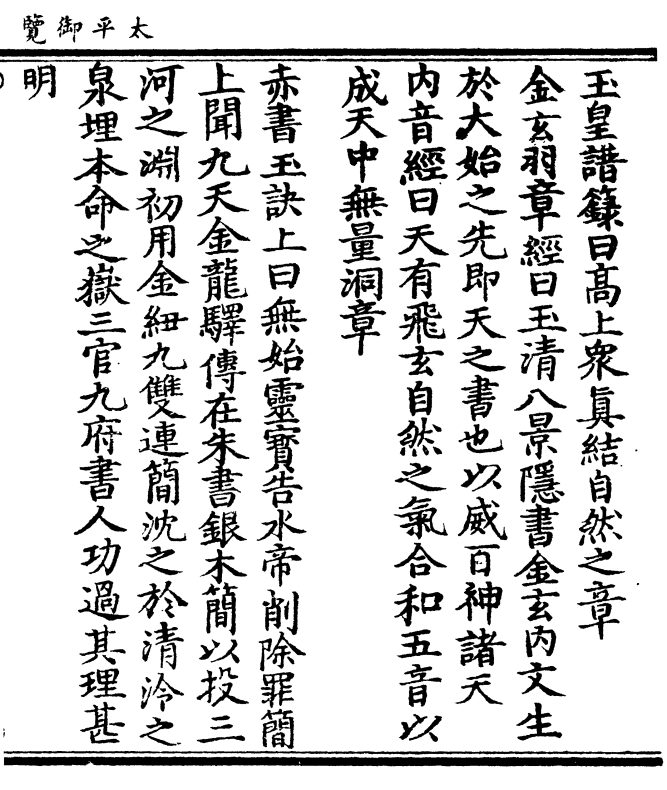 太平御覽
玉皇譜籙曰髙上衆眞結自然之章
金玄羽章經曰玉清八景隱書金玄内文生
於大始之先即天之書也以威百神諸天
内音經曰天有飛玄自然之氣合和五音以
成天中無量洞章
赤書玉訣上曰無始靈寳告水帝削除罪簡
上聞九天金龍驛傳在朱書銀木簡以投三
河之淵初用金紐九雙連簡沈之於清泠之
泉埋本命之嶽三官九府書人功過其理甚
明